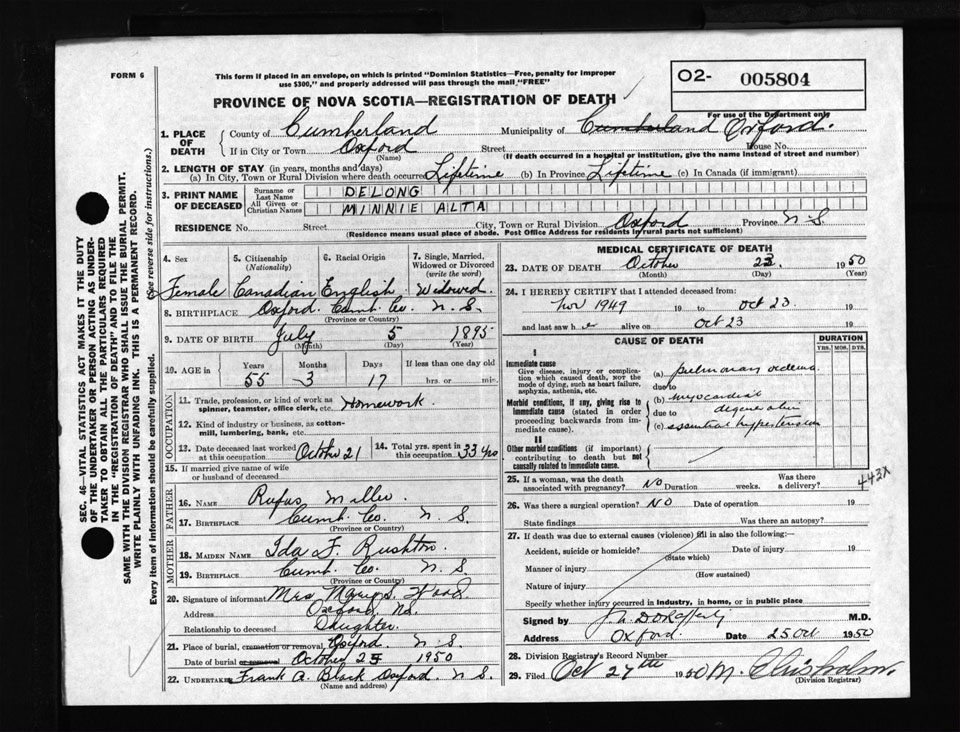 FORM 6
This form if placed in an envelope, on which is printed "Dominion Statistics—Free, penalty for improper
use $300," and properly addressed will pass through the mail "FREE"
O2- 005804
For use of the Department only
PROVINCE OF NOVA SCOTIA—REGISTRATION OF DEATH
1. PLACE OF DEATH
County of Cumberland Municipality of Cumberland Oxford.
If in City or Town Oxford Street House No.
(Name) (If death occurred in a hospital or institution, give the name instead of street and number)
2. LENGTH OF STAY (in years, months and days)
(a) In City, Town or Rural Division where death occurred Lifetime (b) In Province Lifetime (c) In Canada (if immigrant)
3. PRINT NAME OF DECEASED
Surname or Last Name DELONG
All Given or Christian Names MINNIE ALTA
RESIDENCE No. Street City, Town or Rural Division Oxford Province N-S
(Residence means usual place of abode. Post Office Address for residents in rural parts not sufficient)
4. Sex 5. Citizenship (Nationality) 6. Racial Origin 7. Single, Married, Widowed or Divorced (write the word)
Female Canadian English Widowed
8. BIRTHPLACE Oxford. Cumb. Co. N. S.
(Province or Country)
9. DATE OF BIRTH July 5 1895
(Month) (Day) (Year)
10. AGE in Years Months Days If less than one day old
55 3 17 hrs. or min.
OCCUPATION
11. Trade, profession, or kind of work as
spinner, teamster, office clerk, etc. Homework.
12. Kind of industry or business, as cotton-
mill, lumbering, bank, etc.
13. Date deceased last worked at this occupation October 21 14. Total yrs. spent in this occupation 33 yrs
15. If married give name of wife
or husband of deceased
FATHER
16. NAME Rufus Miller
17. BIRTHPLACE Cumb. Co. N. S.
(Province or Country)
MOTHER
18. MAIDEN NAME Ida F. Rushton
19. BIRTHPLACE Cumb. Co. N. S.
(Province or Country)
20. Signature of informant Mrs
Address Oxford, NS.
Relationship to deceased Daughter.
21. Place of burial, cremation or removal Oxford. N-S
Date of burial or removal October 25 1950
22. UNDERTAKER Frank A. Black Oxford. N. S.
(Name and address)
MEDICAL CERTIFICATE OF DEATH
23. DATE OF DEATH October 23. 1950
(Month) (Day) (Year)
24. I HEREBY CERTIFY that I attended deceased from:
Nov 1949 19 to Oct 23. 19
and last saw h er alive on Oct 23 19
CAUSE OF DEATH
DURATION
YRS. MOS. DYS.
I
Immediate cause
Give disease, injury or complica-
tion which caused death, not the
mode of dying, such as heart failure,
asphyxia, asthenia, etc.
(a) pulmonary oedema
due to
Morbid conditions, if any, giving rise to
immediate cause (stated in order
proceeding backwards from im-
mediate cause).
(b) myocardial
due to degeneration
(c) essential hypertension
II
Other morbid conditions (if important)
contributing to death but not
causally related to immediate cause.
443X
25. If a woman, was the death
associated with pregnancy? NO Duration weeks. Was there a delivery?
26. Was there a surgical operation? NO Date of operation 19
State findings Was there an autopsy?
27. If death was due to external causes (violence) fill in also the following:—
Accident, suicide or homicide? Date of injury 19
(State which)
Manner of injury
(How sustained)
Nature of injury
Specify whether injury occurred in industry, in home, or in public place
Signed by M.D.
Address Oxford. Date 25 Oct 1950
28. Division Registrar's Record Number
29. Filed Oct 27th 1950 M. Chisholm.
(Division Registrar)
SEC. 46—VITAL STATISTICS ACT MAKES IT THE DUTY
OF THE UNDERTAKER OR PERSON ACTING AS UNDER-
TAKER TO OBTAIN ALL THE PARTICULARS REQUIRED
IN THE "REGISTRATION OF DEATH" AND TO FILE THE
SAME WITH THE DIVISION REGISTRAR WHO SHALL ISSUE THE BURIAL PERMIT.
WRITE PLAINLY WITH UNFADING INK. THIS IS A PERMANENT RECORD.
Every item of information should be carefully supplied. (See reverse side for instructions.)